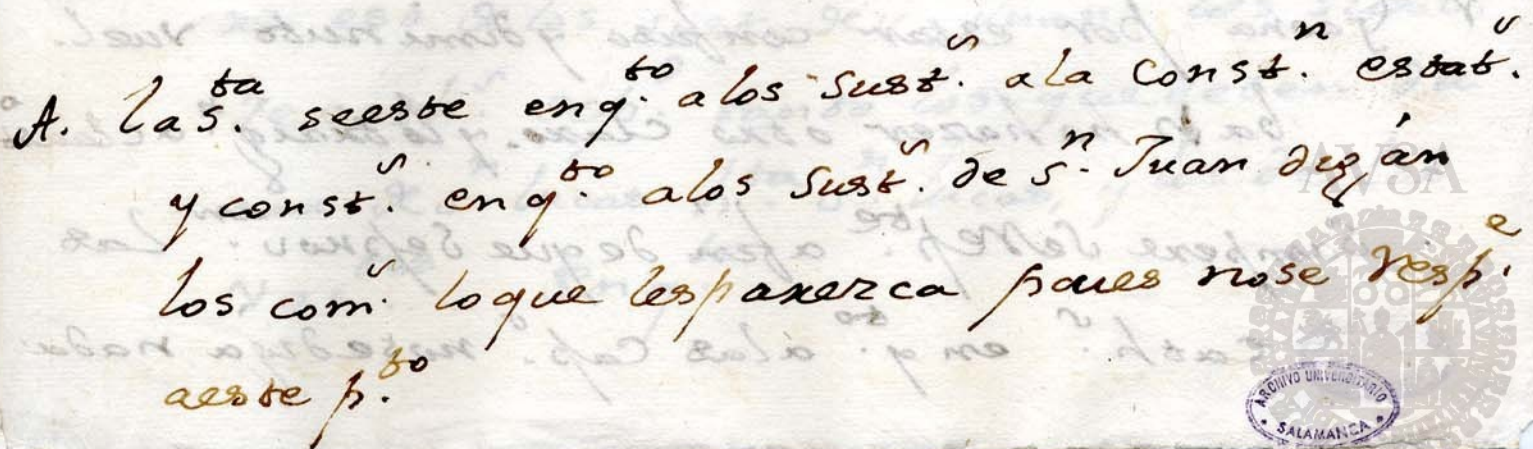 A. las.ta seeste enq.to a los Sust.s ala Const.n estat.s
y const.s enq.to alos Sust.s de S.n Juan digán
los com.s loque lesparezca pues nose resp.e
aeste p.to
AVSA
ARCHIVO UNIVERSITARIO
SALAMANCA